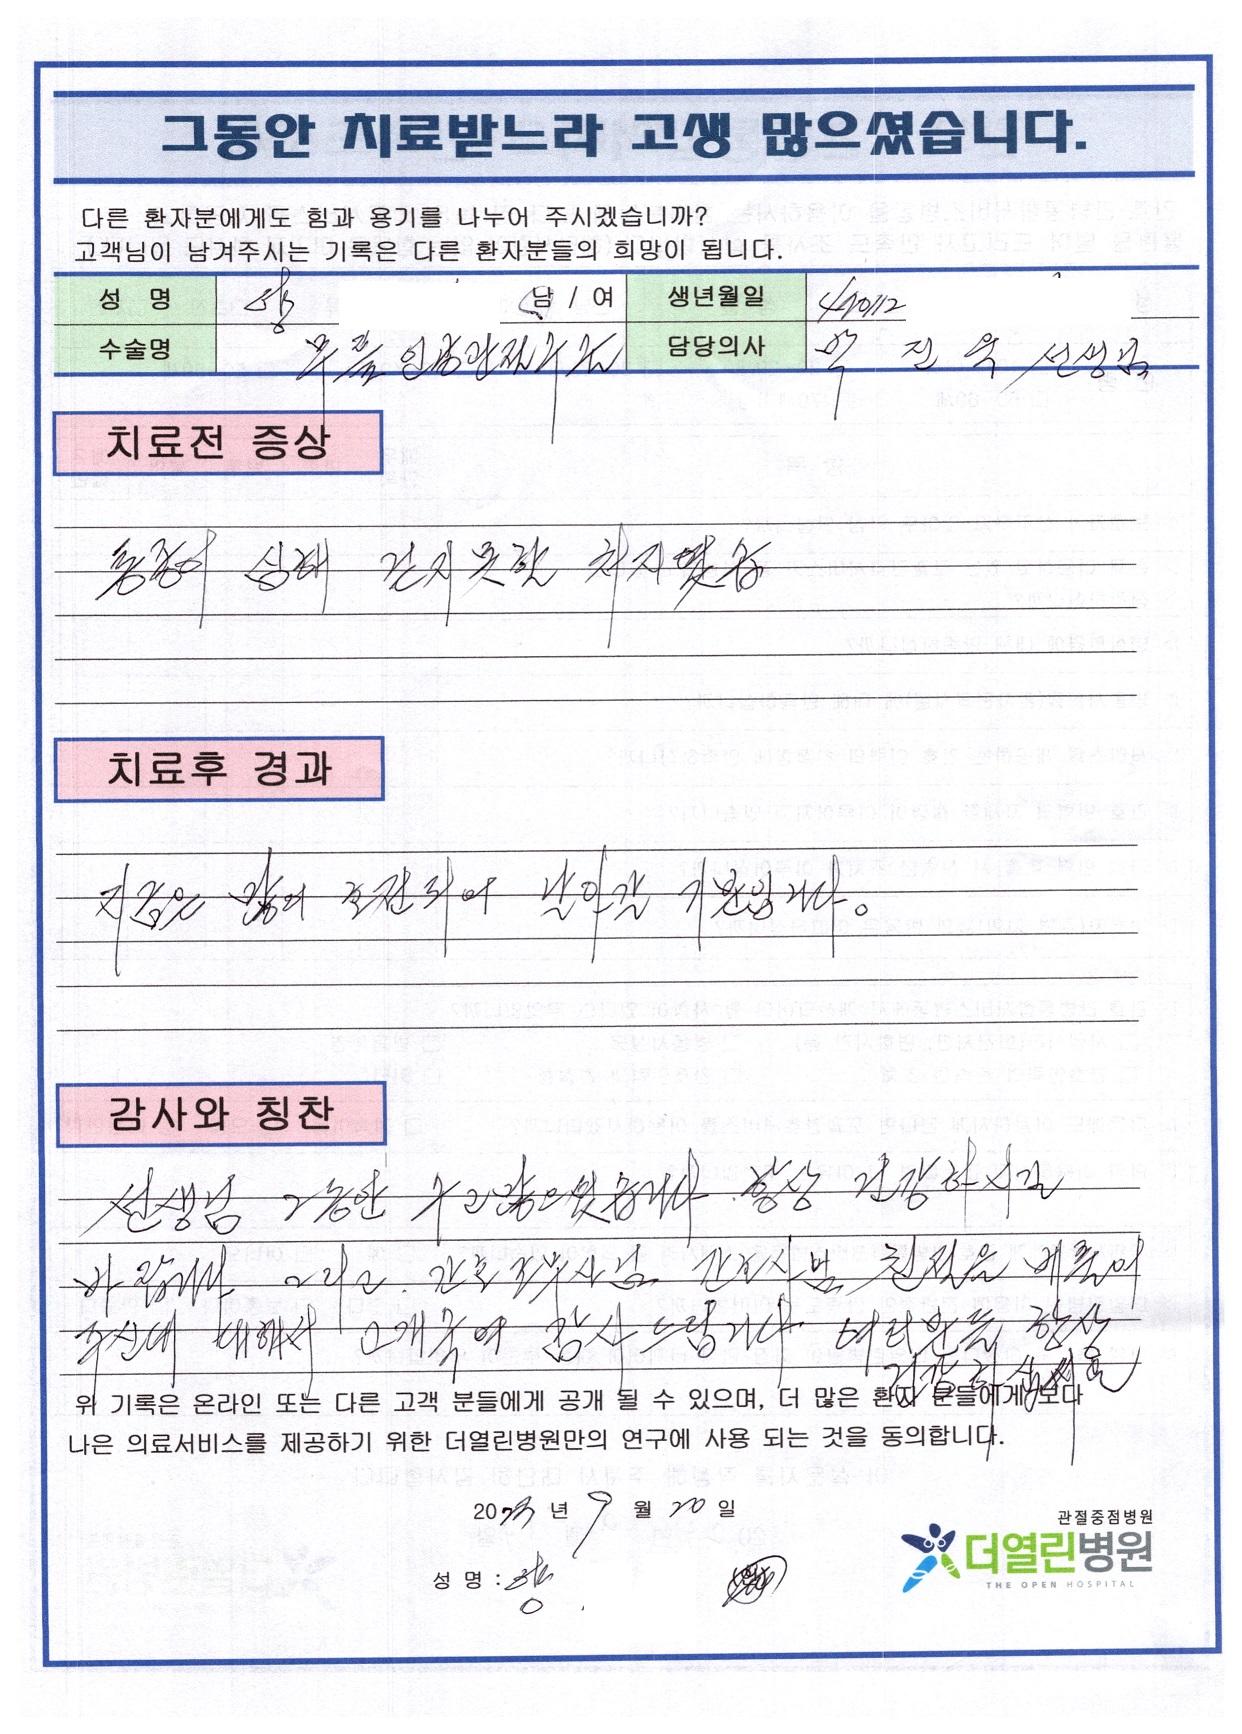 그동안 치료받느라 고생 많으셨습니다.
다른 환자분에게도 힘과 용기를 나누어 주시겠습니까?
고객님이 남겨주시는 기록은 다른 환자분들의 희망이 됩니다.
성 명 양 남 / 여 생년월일
수술명 무릎 인공관절수술 담당의사 박 진 욱 선생님
치료전 증상
통증이 심해 걷지못한 처지였슴
치료후 경과
지금은 많이 호전되어 날아갈 기분입니다.
감사와 칭찬
선생님 그동안 수고많으셨습니다 항상 건강하시길
바랍니다 그리고 간호조무사님 간호사님 친절은 베풀어
주신데 대해서 고개숙여 감사 드립니다 여러분들 항상
건강하십시요
위 기록은 온라인 또는 다른 고객 분들에게 공개 될 수 있으며, 더 많은 환자 분들에게 보다
나은 의료서비스를 제공하기 위한 더열린병원만의 연구에 사용 되는 것을 동의합니다.
2023 년 9 월 20 일
관절중점병원
더열린병원
THE OPEN HOSPITAL
성 명 : 양